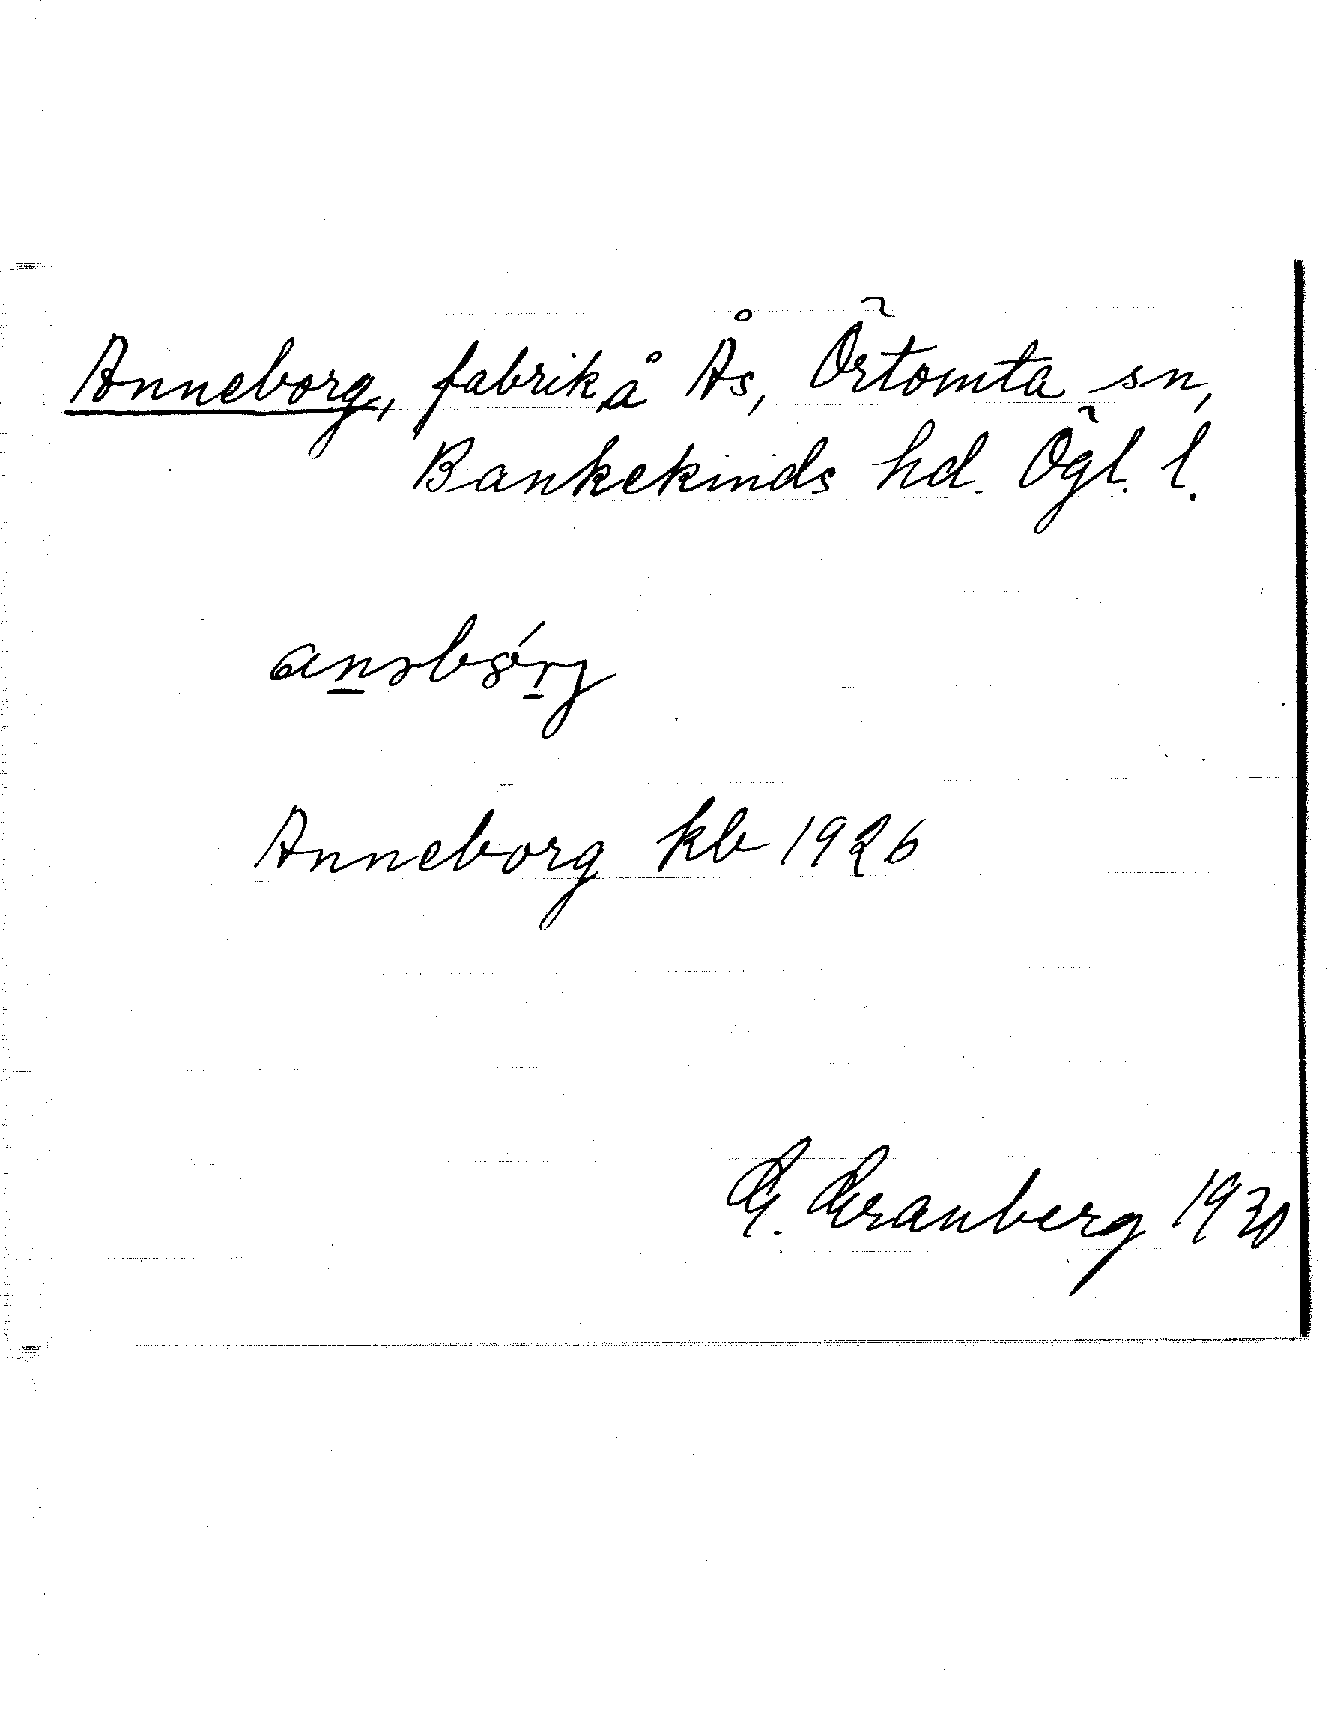 Anneborg, fabrik å Ås, Örtomta sn,
Bankekinds hd. Ögl. l.
Anneborg kb 1926
G. Granberg 1930